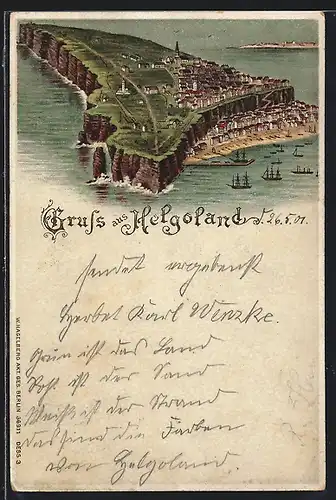 Gruss aus Helgoland, d. 26.5.01.
sendet ergebenst
Herbert Karl Wenzke.
Grün ist das Land
Rot ist der Sand
Weiß ist der Strand
das sind die Farben
von Helgoland.
W. HAGELBERG AKT. GES. BERLIN
DESS. 3